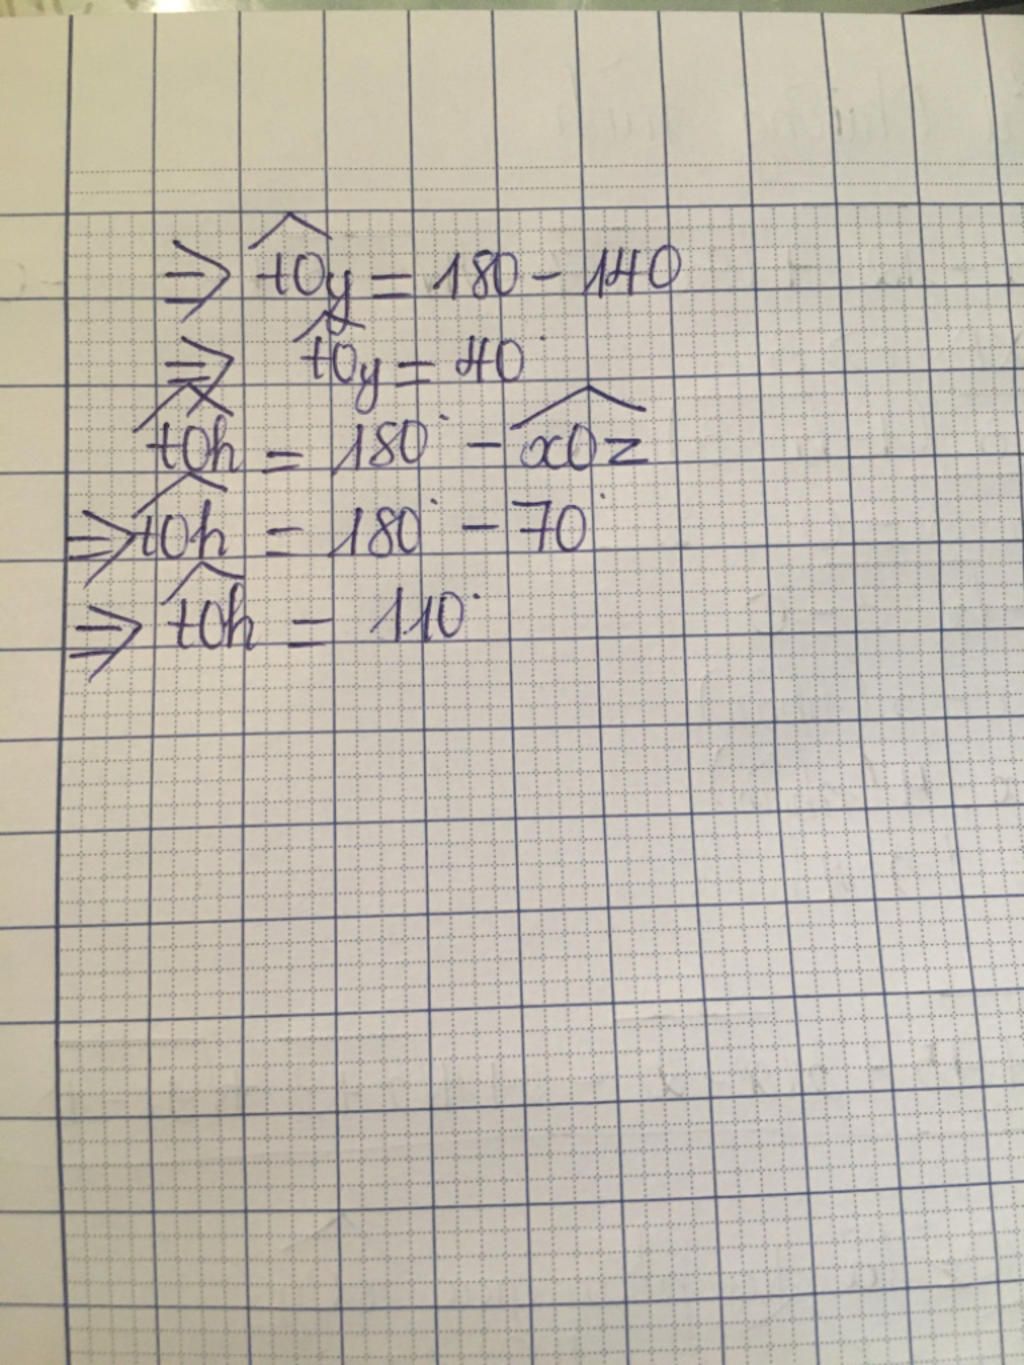 ⇒ \widehat{tOy} = 180 - 140
⇒ \widehat{tOy} = 40°
\widehat{tOh} = 180° - \widehat{xOz}
⇒ \widehat{tOh} = 180° - 70°
⇒ \widehat{tOh} = 110°